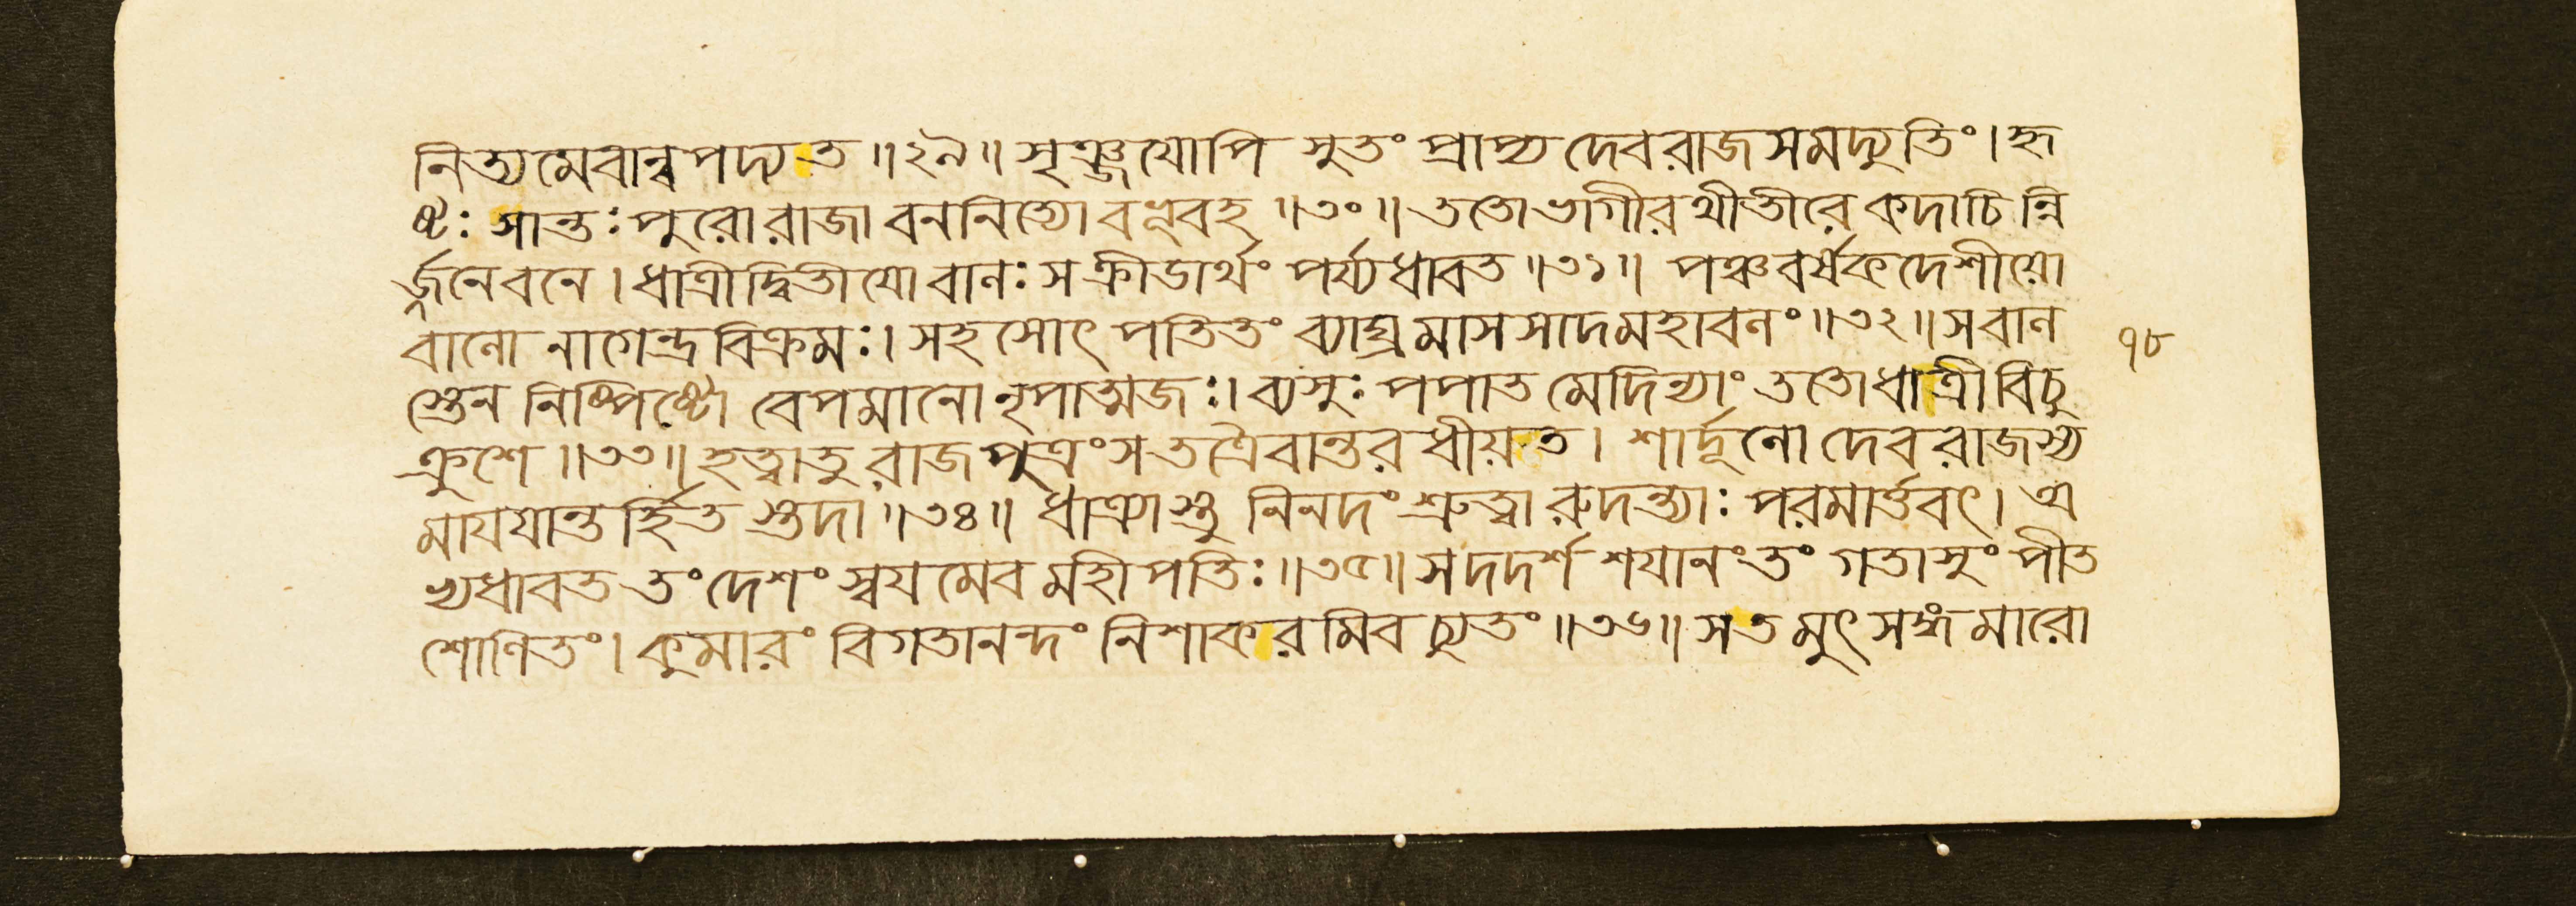 নিত্যমেবান্বপদ্যত॥২৯॥সৃঞ্জযোপি সুতং প্রাপ্য দেবরাজসমদ্যুতিং।হৃ
ষ্টঃ সান্তঃপুরোরাজা বননিত্যোবভূবহ॥৩০॥ততোভাগীরথীতীরেকদাচিন্নি
র্জ্জনেবনে।ধাত্রীদ্বিতীযোবালঃসক্রীডার্থং পর্য্যধাবত॥৩১॥ পঞ্চবর্ষকদেশীয়ো
বালো নাগেন্দ্রবিক্রমঃ।সহসোৎপতিতং ব্যাঘ্রমাসসাদমহাবলং॥৩২॥সবাল
স্তেন নিষ্পিষ্টো বেপমানোনৃপাত্মজঃ।ব্যসুঃপপাত মেদিন্যাং ততোধাত্রীবিচু
ক্রুশে॥৩৩॥হত্বাতু রাজপুত্রংসতত্রৈবান্তরধীয়ত। শার্দূলো দেবরাজস্য
মাযযান্তর্হিতস্তদা॥৩৪॥ ধাত্র্যাস্তু নিনদং শ্রুত্বা রুদন্ত্যাঃ পরমার্ত্তবৎ। অ
ভ্যধাবত তং দেশং স্বযমেব মহীপতিঃ॥৩৫॥সদদর্শ শযানং তং গতাসুং পীত
শোণিতং।কুমারং বিগতানন্দং নিশাকরমিবচ্যুতং॥৩৬॥সতমুৎসঙ্গমারো
৭৮